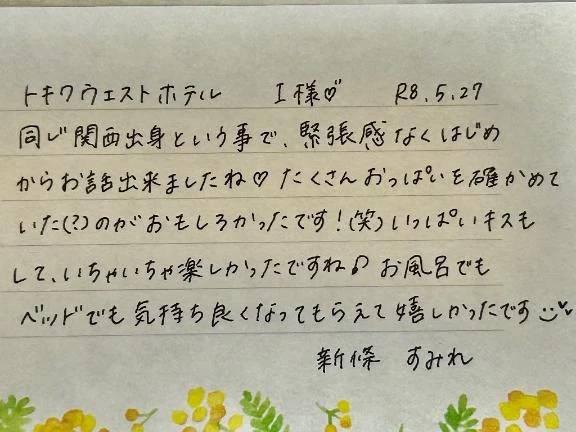 トキワウエストホテル I様♡ R8.5.27
同じ関西出身という事で、緊張感なくはじめ
からお話出来ましたね♡ たくさんおっぱいを確かめて
いた(?)のがおもしろかったです!(笑)いっぱいキスも
して、いちゃいちゃ楽しかったですね♪ お風呂でも
ベッドでも気持ち良くなってもらえて嬉しかったです
新條 すみれ